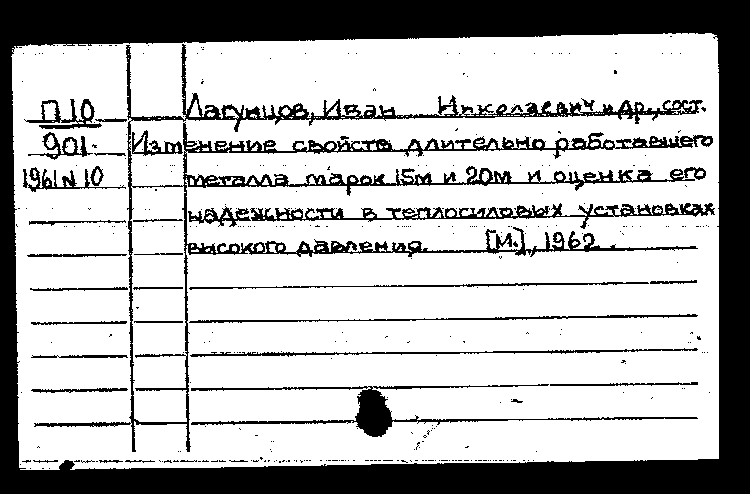 П10 Лагунцов, Иван Николаевич и др., сост.
901. Изменение свойств длительно работавшего
1961 N 10 металла марок 15м и 20м и оценка его
надежности в теплосиловых установках
высокого давления. [М.], 1962.